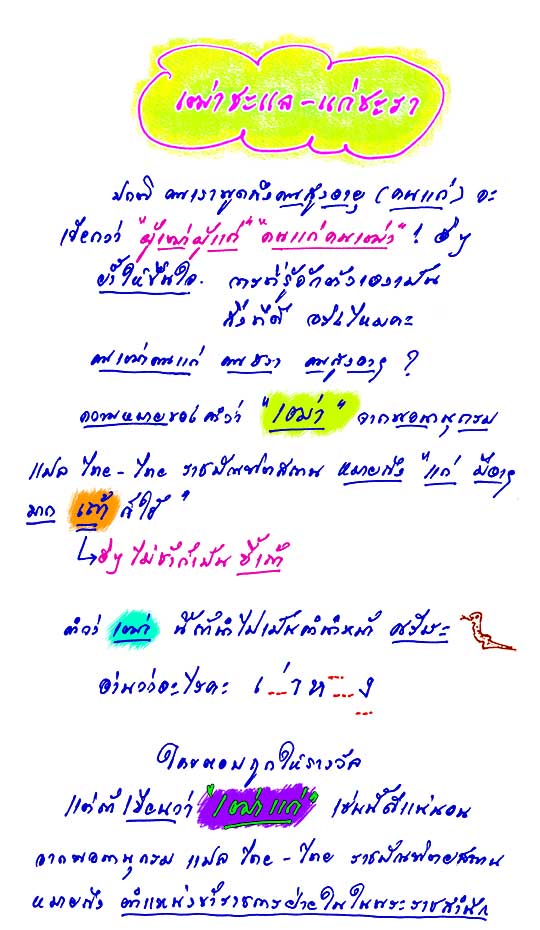 เฒ่าชะแล-แก่ชะรา
ปกติ คนเราพูดถึงคนสูงอายุ (คนแก่) จะ
เรียกว่า "ผู้เฒ่าผู้แก่" "คนแก่คนเฒ่า" ! ฮึๆ
ย้ำให้ชื่นใจ. การที่รู้จักตัวเองเป็น
สิ่งที่ดี จริงไหมคะ
คนเฒ่าคนแก่ คนชรา คนสูงอายุ ?
ความหมายของคำว่า "เฒ่า" จากพจนานุกรม
แปล ไทย-ไทย ราชบัณฑิตยสถาน หมายถึง "แก่ มีอายุ
มาก เถ้า ก็ใช้"
ฮึๆ ไม่ช้าก็เป็น ขี้เถ้า
คำว่า เฒ่า นี้ถ้านำไปเป็นคำนำหน้า
อ่านว่าอะไรคะ เ_่าห__ง
ใครตอบถูกให้รางวัล
แต่ถ้าเขียนว่า "เฒ่าแก่" เช่นนี้สิแน่นอน
จากพจนานุกรม แปล ไทย-ไทย ราชบัณฑิตยสถาน
หมายถึง ตำแหน่งข้าราชการฝ่ายในในพระราชสำนัก